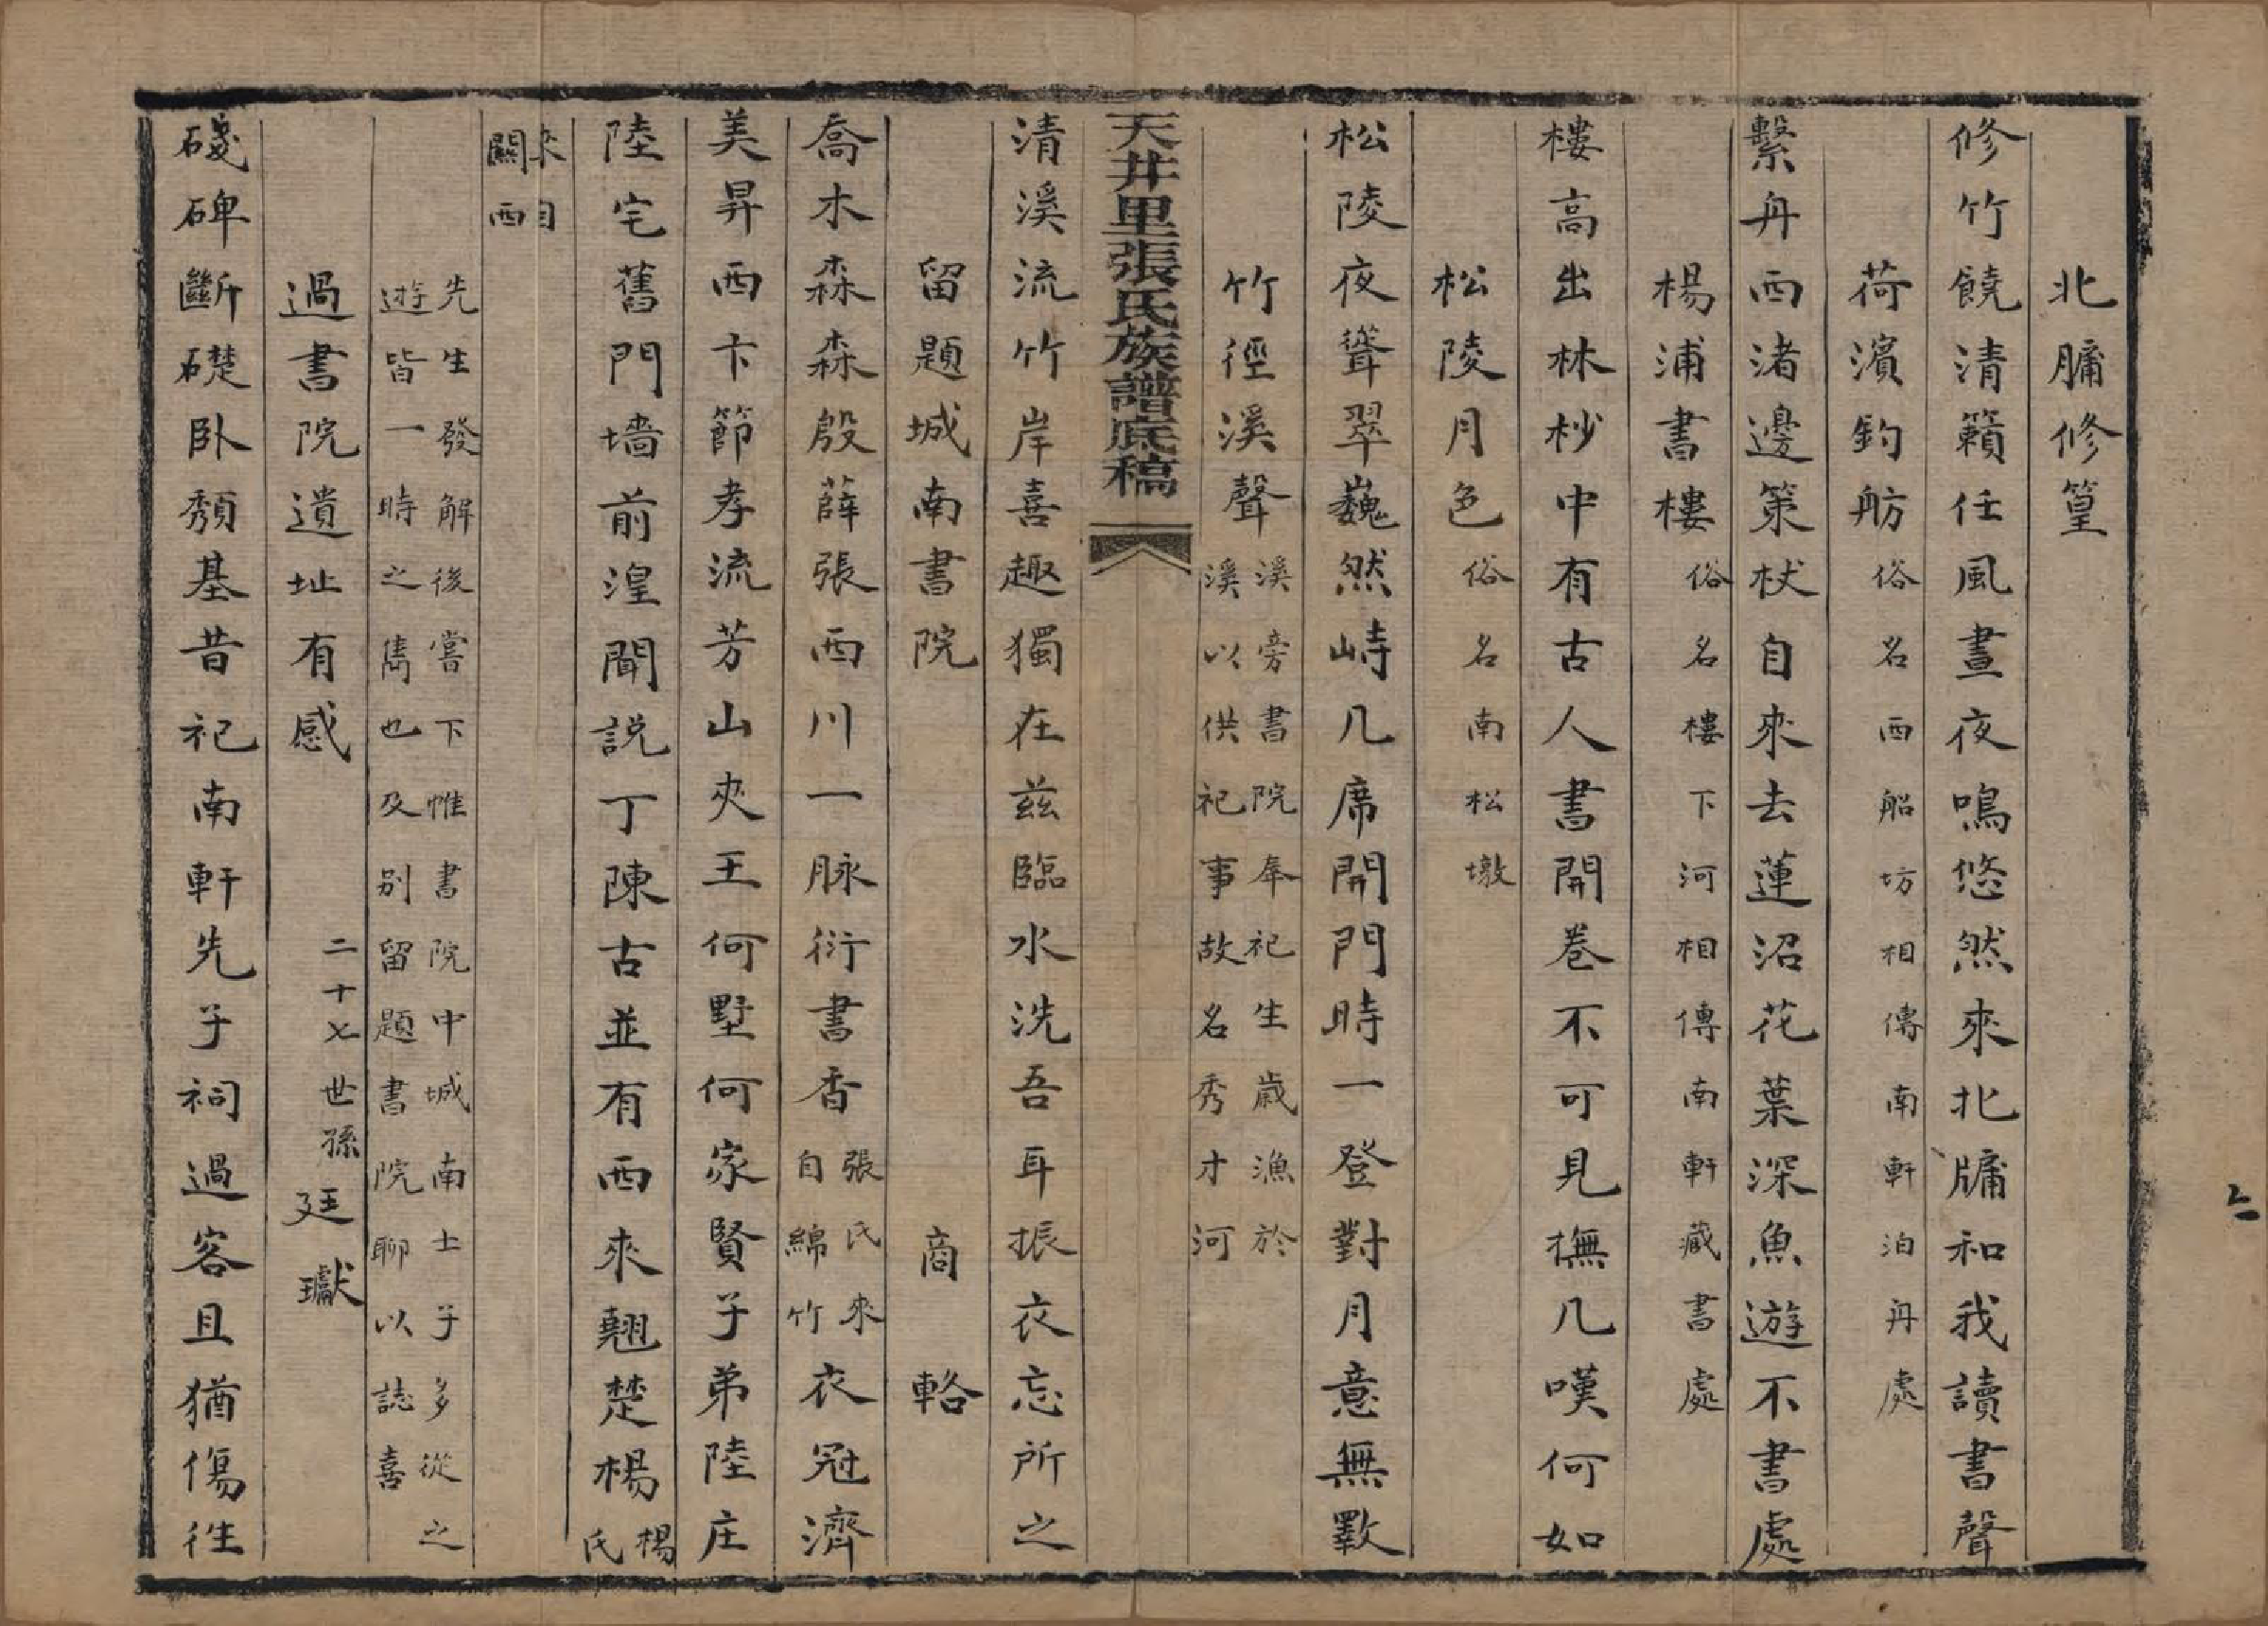 北牗修篁
修竹饒清籟任風晝夜鳴悠然來北牗和我讀書聲
荷濱釣舫俗名西船坊相傳南軒泊舟處
繫舟西渚邊策杖自來去蓮沼花葉深魚遊不書處
楊浦書樓俗名樓下河相傳南軒藏書處
樓高出林杪中有古人書開卷不可見撫几嘆何如
松陵月色俗名南松墩
松陵夜聳翠巍然峙几席開門時一登對月意無斁
竹徑溪聲溪旁書院奉祀生歲漁於
溪以供祀事故名秀才河
天井里張氏族譜底稿
清溪流竹岸喜趣獨在茲臨水洗吾耳振衣忘所之
留題城南書院 商輅
喬木森森殷薛張西川一脉衍書香張氏來
自綿竹衣冠濟
美昇西卞節孝流芳山夾王何墅何家賢子弟陸庄
陸宅舊門墙前湟聞説丁陳古並有西來翹楚楊楊
氏
來自
關西
先生發解後嘗下帷書院中城南士子多從之
遊皆一時之雋也及別留題書院聊以誌喜
過書院遺址有感 二十七世孫廷獻
殘碑斷礎卧頹基昔祀南軒先子祠過客且猶傷往
六